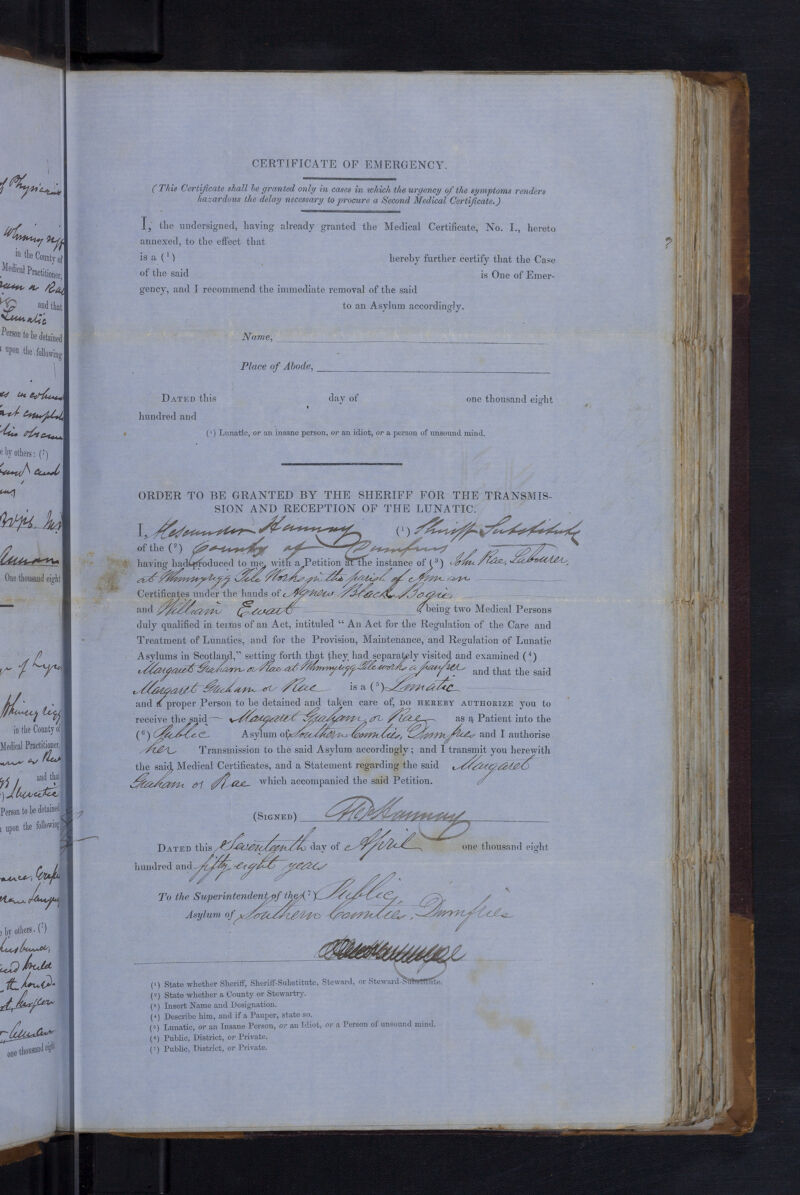 CERTIFICATE OF EMERGENCY.
(This Certificate shall be granted only in cases in which the urgency of the symptoms renders
hazardous the delay necessary to procure a Second Medical Certificate.)
I, the undersigned, having already granted the Medical Certificate, No. I., hereto
annexed, to the effect that
is a (1) hereby further certify that the Case
of the said is One of Emer-
gency, and I recommend the immediate removal of the said
to an Asylum accordingly.
Name,
Place of Abode,
DATED this day of one thousand eight
hundred and
(1) Lunatic, or an insane person, or an idiot, or a person of unsound mind.
ORDER TO BE GRANTED BY THE SHERIFF FOR THE TRANSMIS-
SION AND RECEPTION OF THE LUNATIC.
I, Alexander Hannay (1) Sheriff Substitute
of the (2) County of Dumfries
having had produced to me, with a Petition at the instance of (3) John Rae, Labourer,
at Whinnyrigg Tile Works in the parish of Annan
Certificates under the hands of Agnew Black Bogie
and William Ewart being two Medical Persons
duly qualified in terms of an Act, intituled “ An Act for the Regulation of the Care and
Treatment of Lunatics, and for the Provision, Maintenance, and Regulation of Lunatic
Asylums in Scotland,” setting forth that they had separately visited and examined (4)
Margaret Graham or Rae at Whinnyrigg Tileworks a pauper and that the said
Margaret Graham or Rae is a (5) Lunatic
and a proper Person to be detained and taken care of, DO HEREBY AUTHORIZE you to
receive the said Margaret Graham or Rae as a Patient into the
(6) Public Asylum of Southern Counties, Dumfries and I authorise
her Transmission to the said Asylum accordingly; and I transmit you herewith
the said Medical Certificates, and a Statement regarding the said Margaret
Graham or Rae which accompanied the said Petition.
(SIGNED) Hannay
DATED this Seventeenth day of April one thousand eight
hundred and fifty eight years
To the Superintendent of the (7) Public
Asylum of Southern Counties, Dumfries
(1) State whether Sheriff, Sheriff-Substitute, Steward, or Steward-Substitute.
(2) State whether a County or Stewartry.
(3) Insert Name and Designation.
(4) Describe him, and if a Pauper, state so.
(5) Lunatic, or an Insane Person, or an Idiot, or a Person of unsound mind.
(6) Public, District, or Private.
(7) Public, District, or Private.